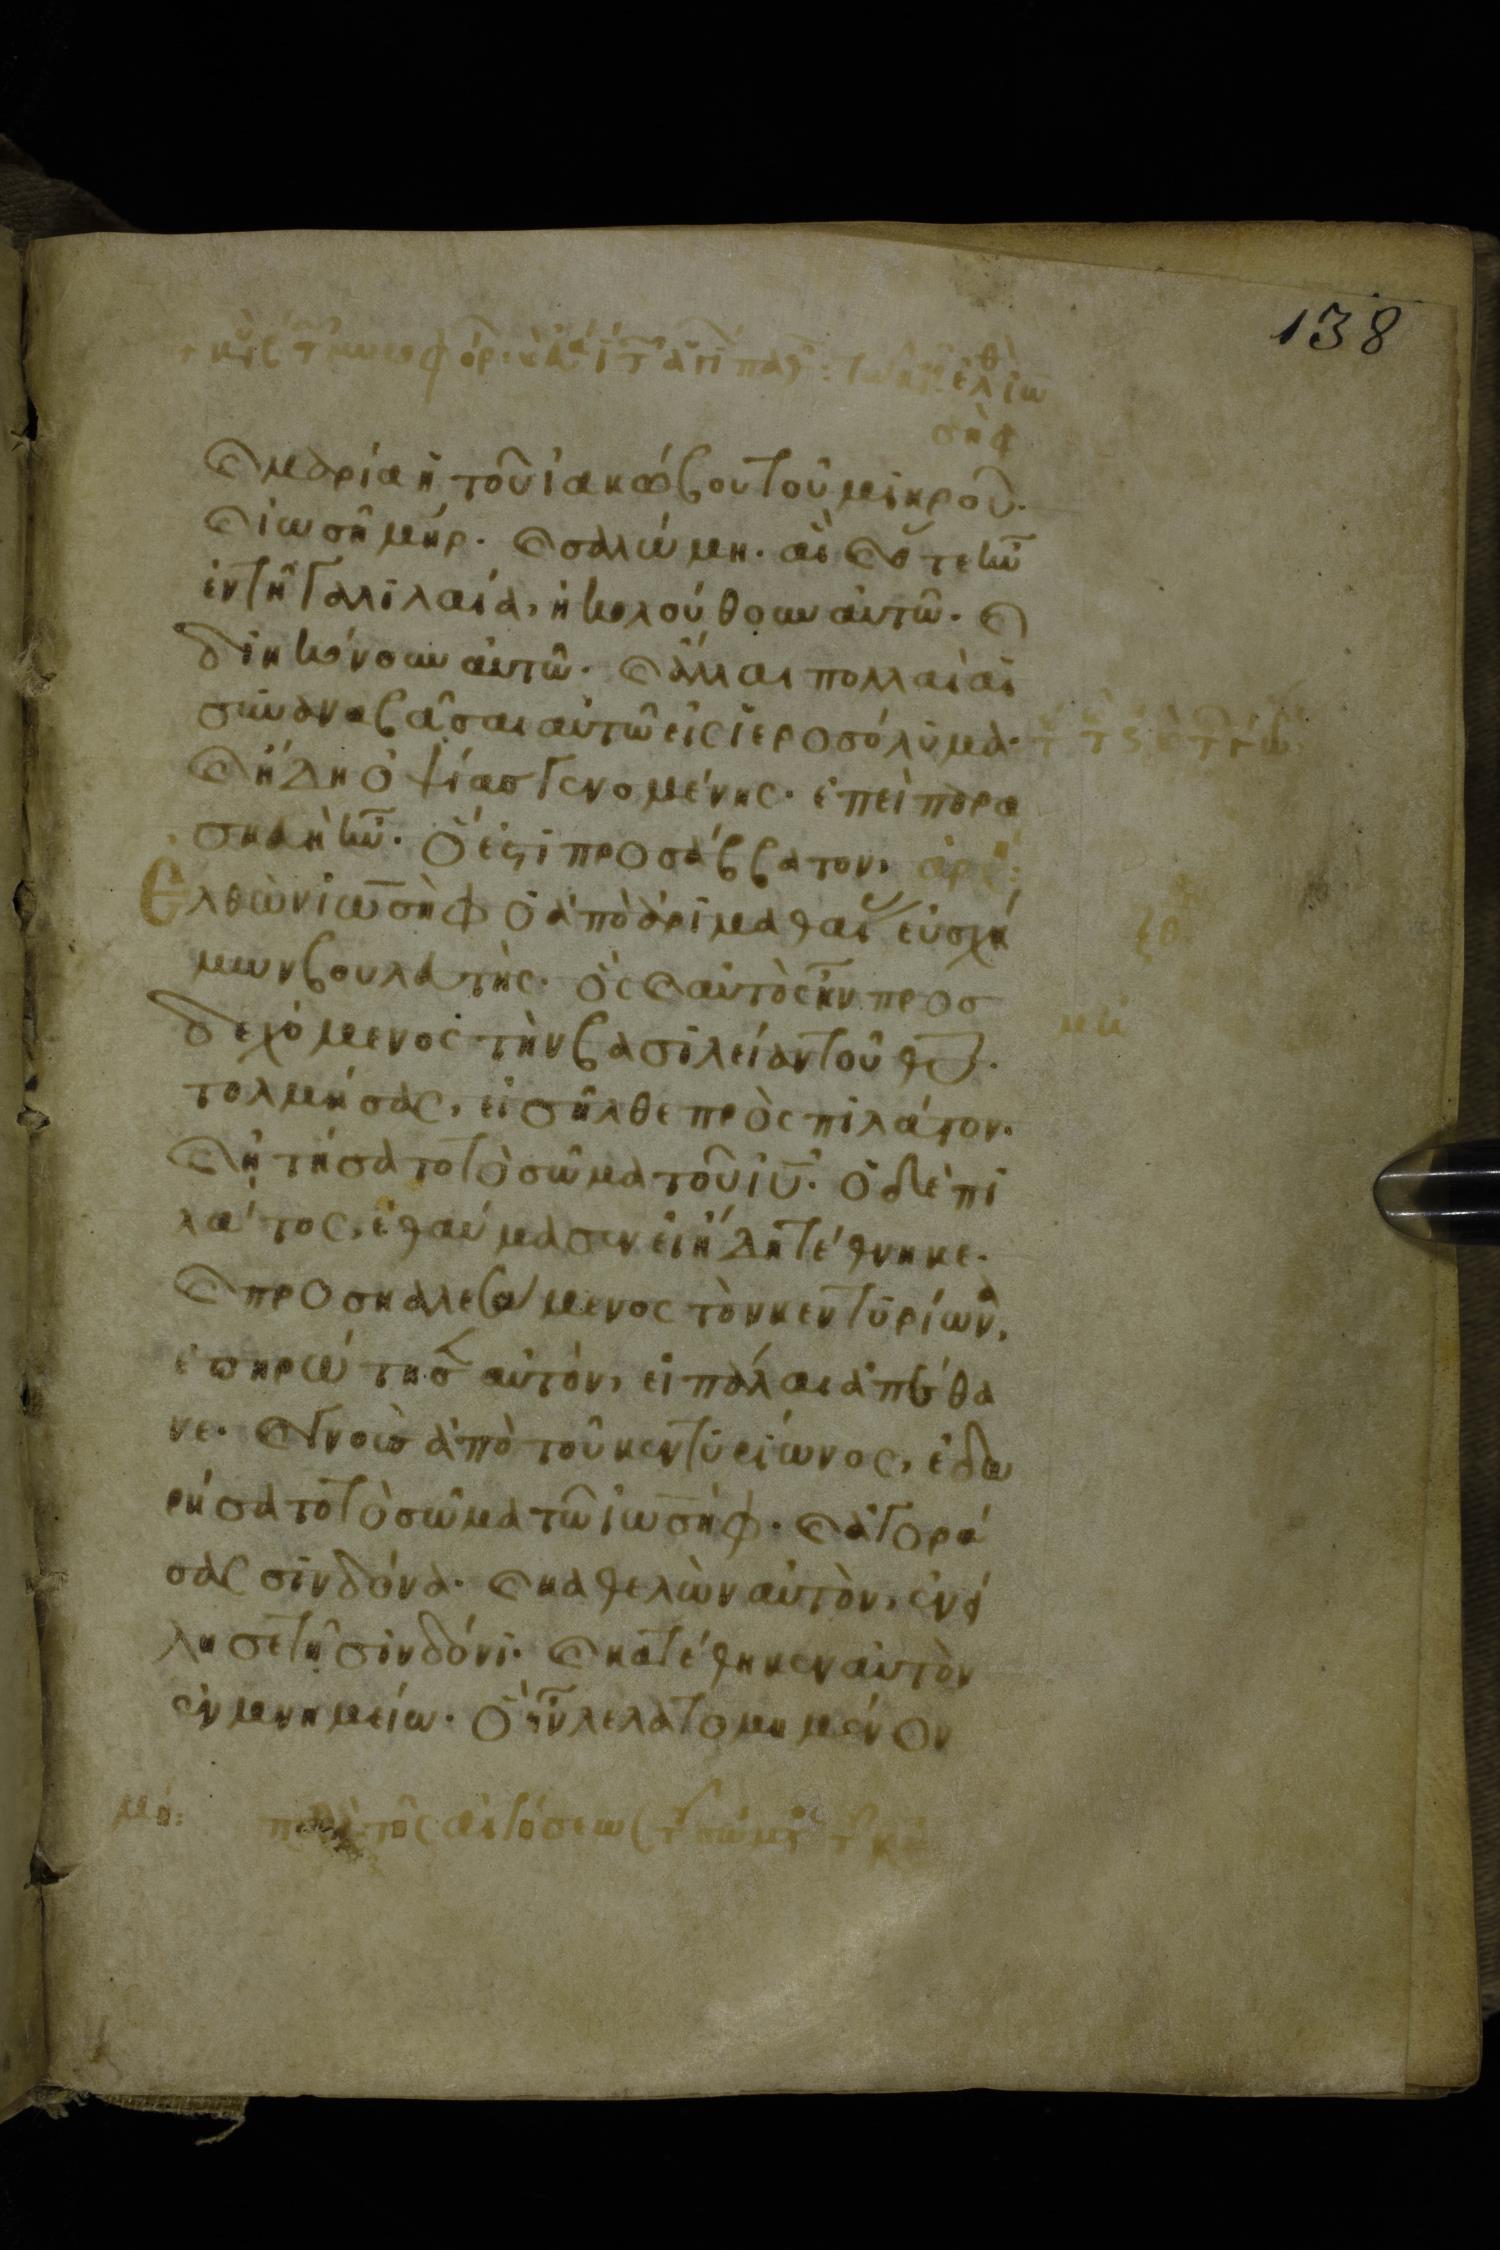 138
ϗ μαρία ἡ τοῦ ἰακώβου τοῦ μικροῦ·
ϗ ἰωσῆ μη̄ρ· ϗ σαλώμη· αἳ ϗ ὅτε ἦν
ἐν τῆ γαλιλαία, ἠκολούθουν αὐτῶ· ϗ
διηκόνουν αὐτῶ· ϗ ἄλλαι πολλαὶ αἱ
συναναβᾶσαι αὐτῶ εἰς ἱεροσόλυμα·
ϗ ἤδη ὀψίας γενομένης· ἐπεὶ παρα
σκευὴ ἦν· ὅ ἐστι προσάββατον,
Ελθὼν ἰωσὴφ ὁ ἀπὸ ἀριμαθαίας εὐσχή
μων βουλευτὴς· ὃς ϗ αὐτὸς ἦν προσ
δεχόμενος τὴν βασιλείαν τοῦ θ̄ῡ·
τολμήσας, εἰσῆλθε πρὸς πιλάτον·
ϗ ἠτήσατο τὸ σῶμα τοῦ ῑῡ· ὁ δὲ πι
λάτος, ἐθαύμασεν εἰ ἤδη τέθνηκε·
ϗ προσκαλεσάμενος τὸν κεντυρίωνα,
ἐπηρώτησεν αὐτὸν, εἰ πάλαι ἀπέθα
νε· ϗ γνοὺς ἀπὸ τοῦ κεντυρίωνος, ἐδω
ρήσατο τὸ σῶμα τῶ ἰωσὴφ· ϗ ἀγορά
σας σινδόνα· ϗ καθελὼν αὐτὸν, ἐνεί
λησε τῆ σινδόνι· ϗ κατέθηκεν αὐτὸν
ἐν μνημείω· ὃ ἦν λελατομημένον